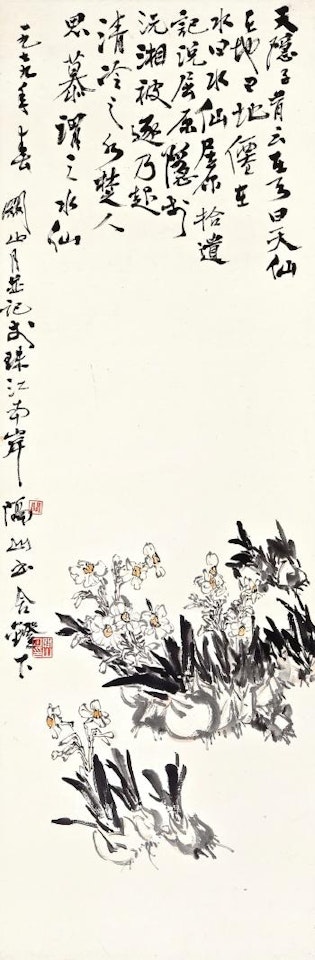 天隱子昔云在天曰天仙
在地曰地僊在
水曰水仙拾遺
記說屈原隱於
沅湘被逐乃赴
清泠之水楚人
思慕謂之水仙
一九七九年春
關山月並記於珠江南岸隔山書舍燈下